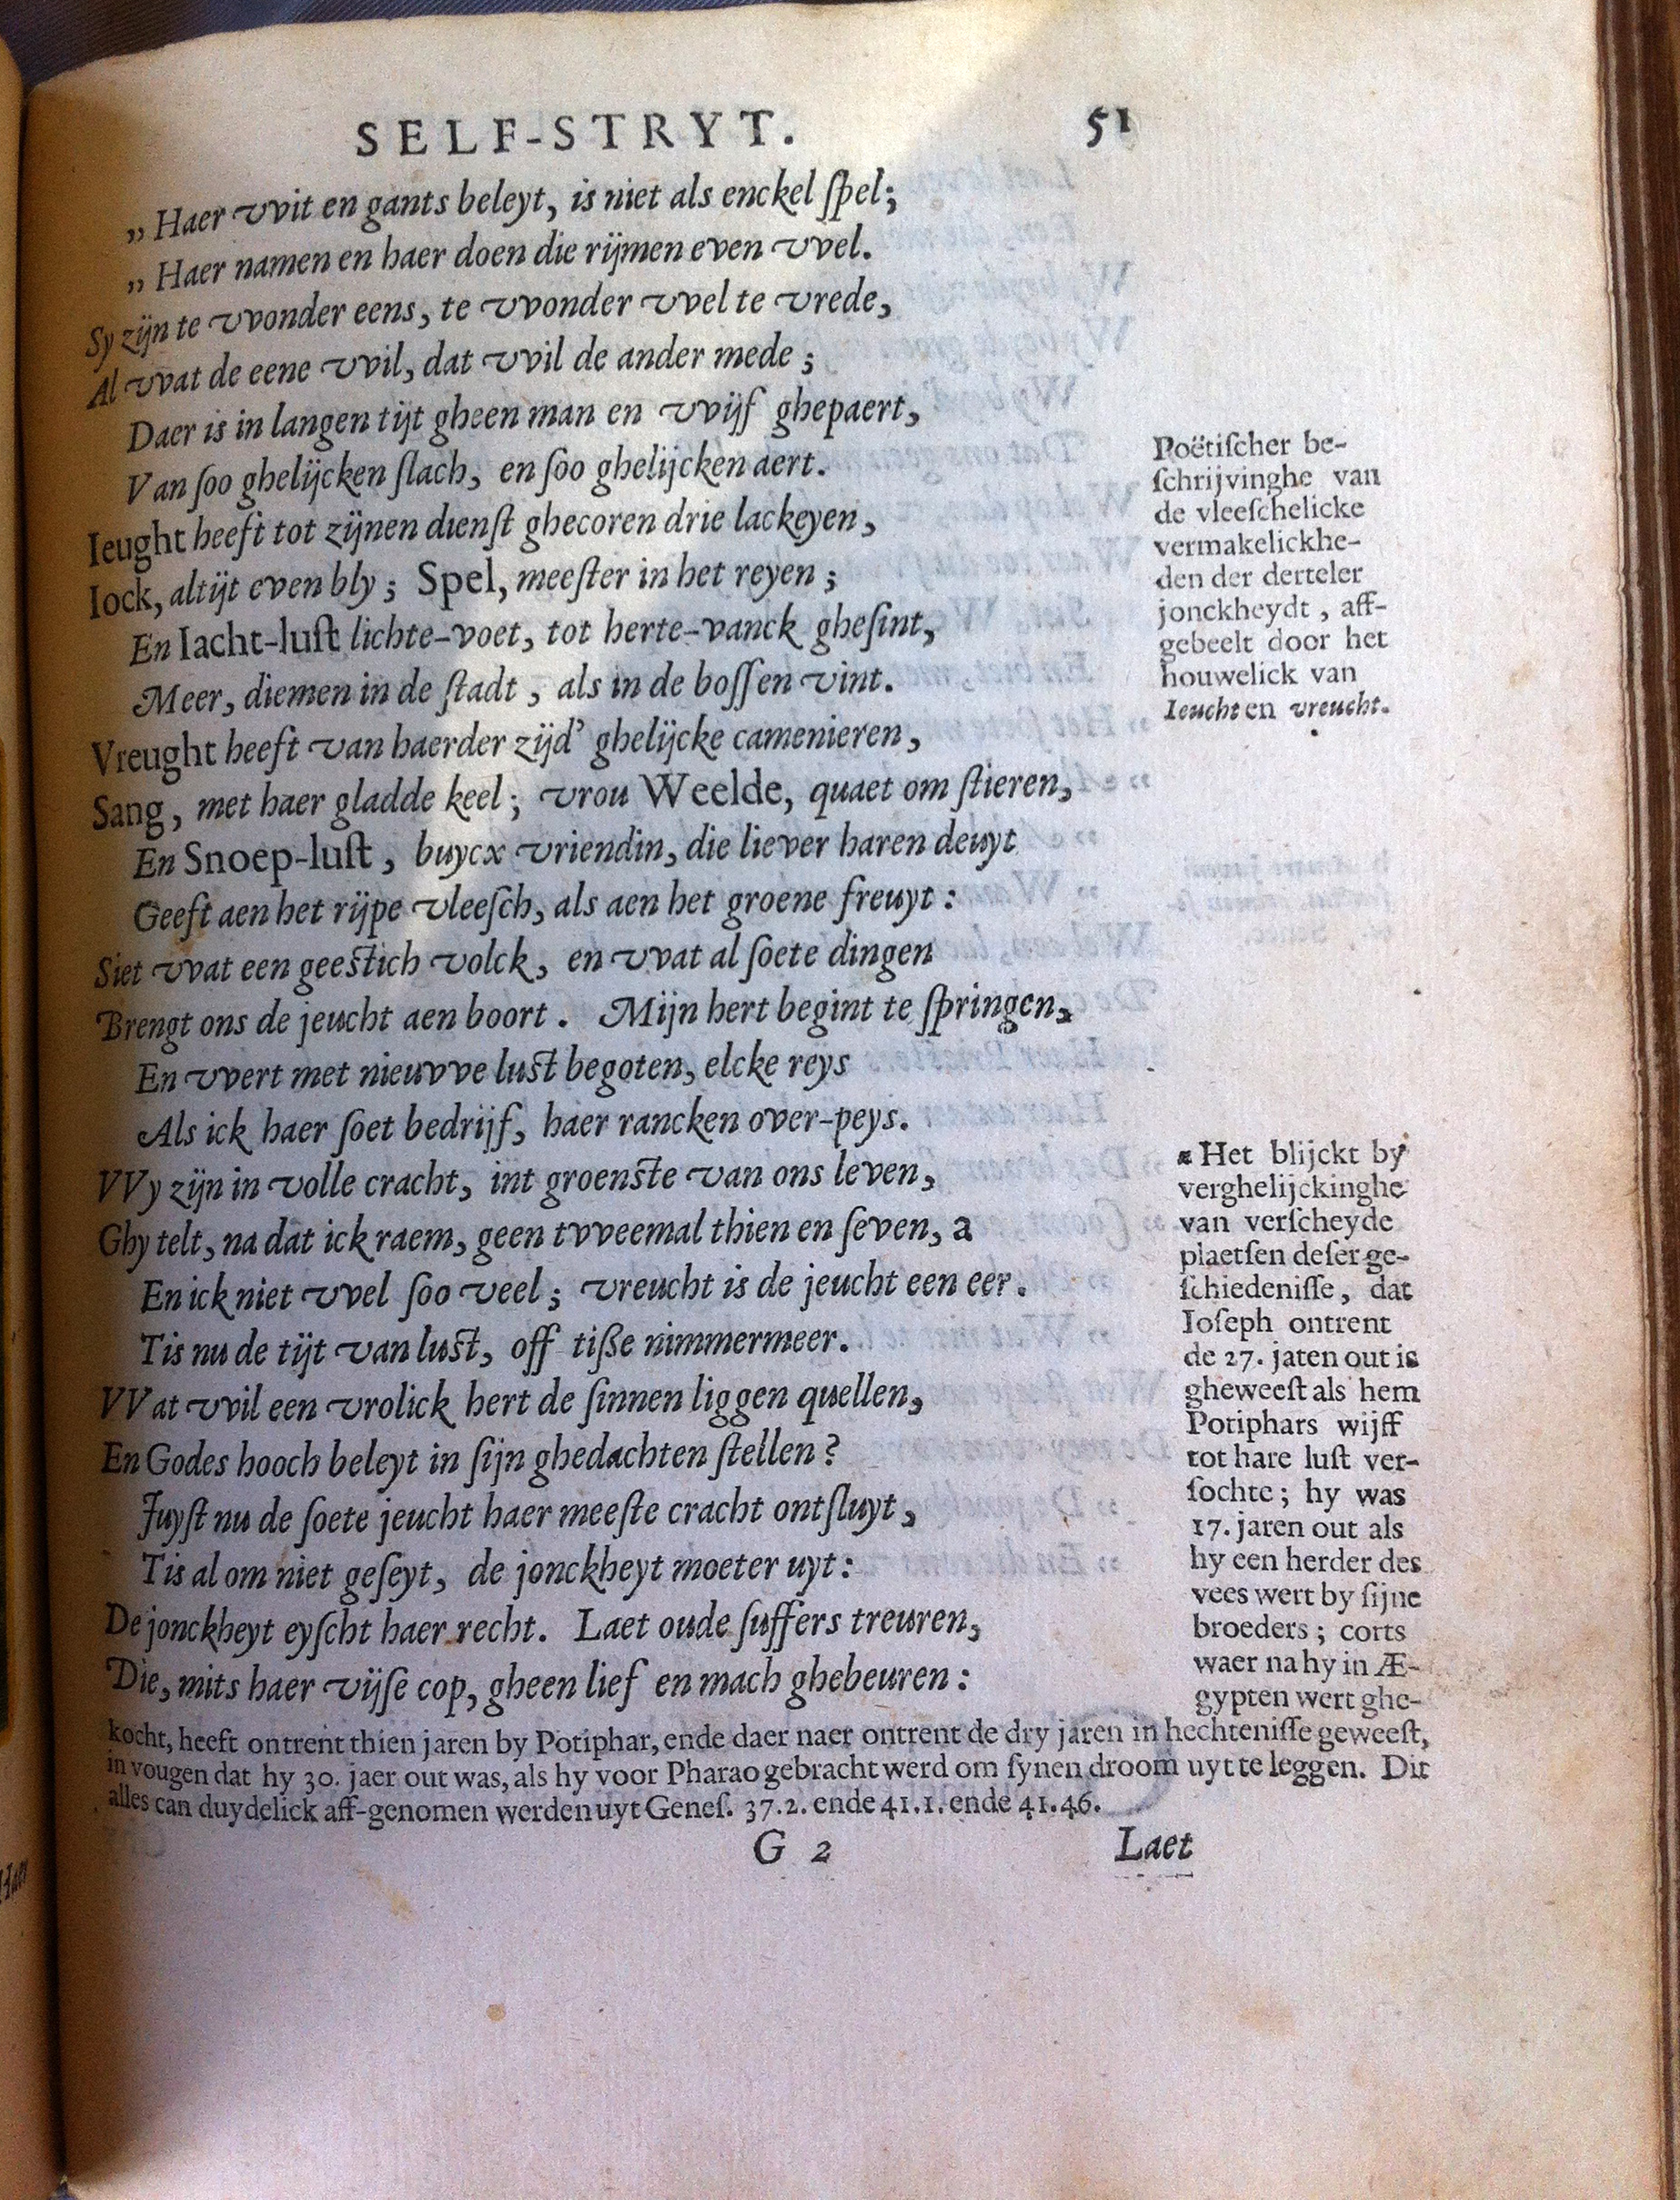 SELF-STRYT. 51
„ Haer vvit en gants beleyt, is niet als enckel ſpel;
„ Haer namen en haer doen die rijmen even vvel.
Sy zijn te vvonder eens, te vvonder vvel te vrede,
Al vvat de eene vvil, dat vvil de ander mede;
Daer is in langen tijt gheen man en vvijf ghepaert,
Van ſoo ghelijcken ſlach, en ſoo ghelijcken aert.
Ieught heeft tot zijnen dienſt ghecoren drie lackeyen,
Iock, altijt even bly; Spel, meeſter in het reyen;
En Iacht-luſt lichte-voet, tot herte-vanck gheſint,
Meer, diemen in de ſtadt, als in de boſſen vint.
Vreught heeft van haerder zijd' ghelijcke camenieren,
Sang, met haer gladde keel; vrou Weelde, quaet om ſtieren,
En Snoep-luſt, buycx vriendin, die liever haren deuyt
Geeft aen het rijpe vleeſch, als aen het groene freuyt:
Siet vvat een geeſtich volck, en vvat al ſoete dingen
Brengt ons de jeucht aen boort. Mijn hert begint te ſpringen,
En vvert met nieuvve luſt begoten, elcke reys
Als ick haer ſoet bedrijf, haer rancken over-peys.
VVy zijn in volle cracht, int groenſte van ons leven,
Ghy telt, na dat ick raem, geen tvveemal thien en ſeven, a
En ick niet vvel ſoo veel; vreucht is de jeucht een eer.
Tis nu de tijt van luſt, off tiſſe nimmermeer.
VVat vvil een vrolick hert de ſinnen liggen quellen,
En Godes hooch beleyt in ſijn ghedachten ſtellen?
Juyſt nu de ſoete jeucht haer meeſte cracht ontſluyt,
Tis al om niet geſeyt, de jonckheyt moeter uyt:
De jonckheyt eyſcht haer recht. Laet oude ſuffers treuren,
Die, mits haer vijſe cop, gheen lief en mach ghebeuren:
Poëtiſcher be-
ſchrijvinghe van
de vleeſchelicke
vermakelickhe-
den der derteler
jonckheydt, aff-
gebeelt door het
houwelick van
Ieucht en vreucht.
a Het blijckt by
verghelijckinghe
van verſcheyde
plaetſen deſer ge-
ſchiedeniſſe, dat
Ioſeph ontrent
de 27. jaten out is
gheweeſt als hem
Potiphars wijff
tot hare luſt ver-
ſochte; hy was
17. jaren out als
hy een herder des
vees wert by ſijne
broeders; corts
waer na hy in Æ-
gypten wert ghe-
kocht, heeft ontrent thien jaren by Potiphar, ende daer naer ontrent de dry jaren in hechteniſſe geweeſt,
in vougen dat hy 30. jaer out was, als hy voor Pharao gebracht werd om ſynen droom uyt te leggen. Dit
alles can duydelick aff-genomen werden uyt Geneſ. 37.2. ende 41.1. ende 41.46.
G 2 Laet